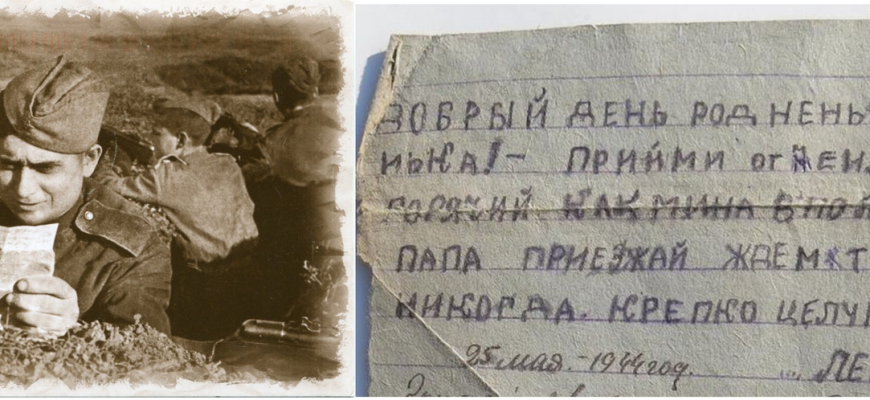 ДОБРЫЙ ДЕНЬ РОДНЕНЬ
ПРИЙМИ ОТ МЕН
ГОРЯЧИЙ КАК МИНА В ПО
ПАПА ПРИЕЗЖАЙ ЖДЕМ Т
НИКОГДА. КРЕПКО ЦЕЛУ
25 мая. - 1944 год. ... ЛЕ